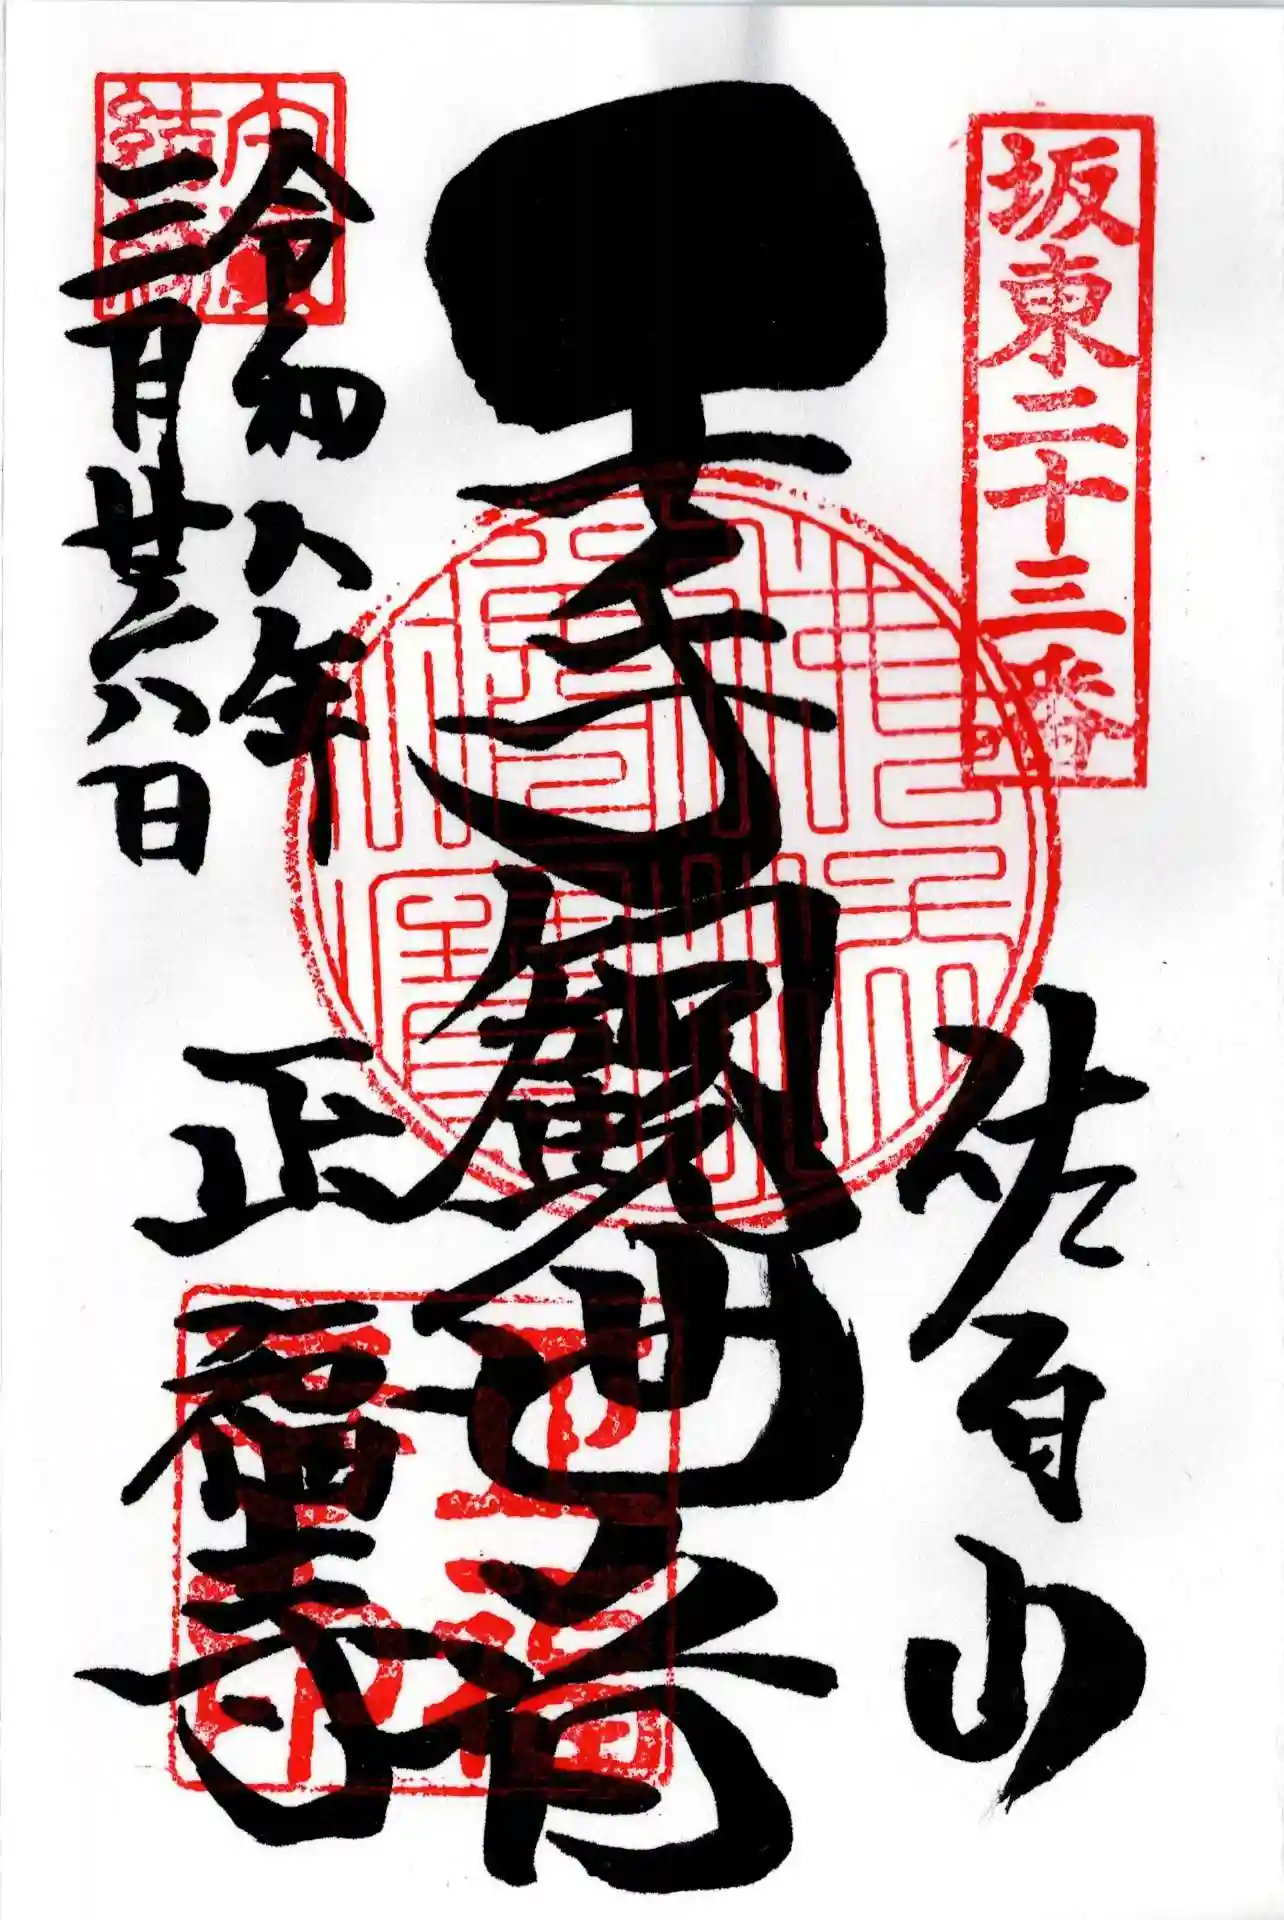 坂東二十三番
佐白山
千手観世音
令和八年
三月廿六日
正福寺